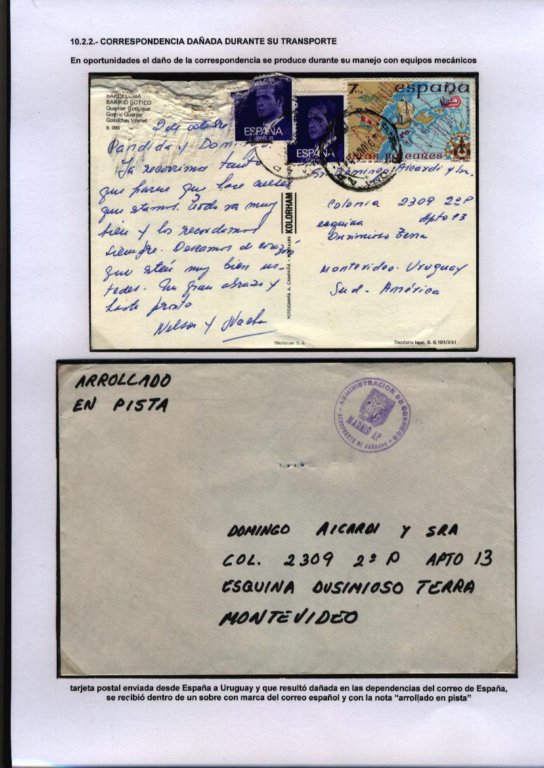 10.2.2.- CORRESPONDENCIA DAÑADA DURANTE SU TRANSPORTE
En oportunidades el daño de la correspondencia se produce durante su manejo con equipos mecánicos
BARCELONA
BARRIO GOTICO
Quartier Gothique
Gothic Quarter
Gotisches Viertel
B. 096
2 de octubre
Ya recorrimos tanto
que parece que hace
que estamos. Todo va muy
bien y los recordamos
siempre. Deseamos de corazón
que estén muy bien us-
tedes. Un gran abrazo y
hasta pronto
Nelson y
KOLORHAM
FOTOGRAFIA A. CAMPAÑÁ
ESPAÑA
ESPAÑA
7
españa
BALEARES
Domingo Aicardi y Sra.
Colonia 2309 2º P
esquina apto 13
Dusimioso Terra
Montevideo. Uruguay
Sud. América
Depósito legal, B. 6.191/XXI
ARROLLADO
EN PISTA
ADMINISTRACION DE CORREOS
MADRID AP.
DOMINGO AICARDI Y SRA
COL. 2309 2º P APTO 13
ESQUINA DUSIMIOSO TERRA
MONTEVIDEO
tarjeta postal enviada desde España a Uruguay y que resultó dañada en las dependencias del correo de España,
se recibió dentro de un sobre con marca del correo español y con la nota "arrollado en pista"